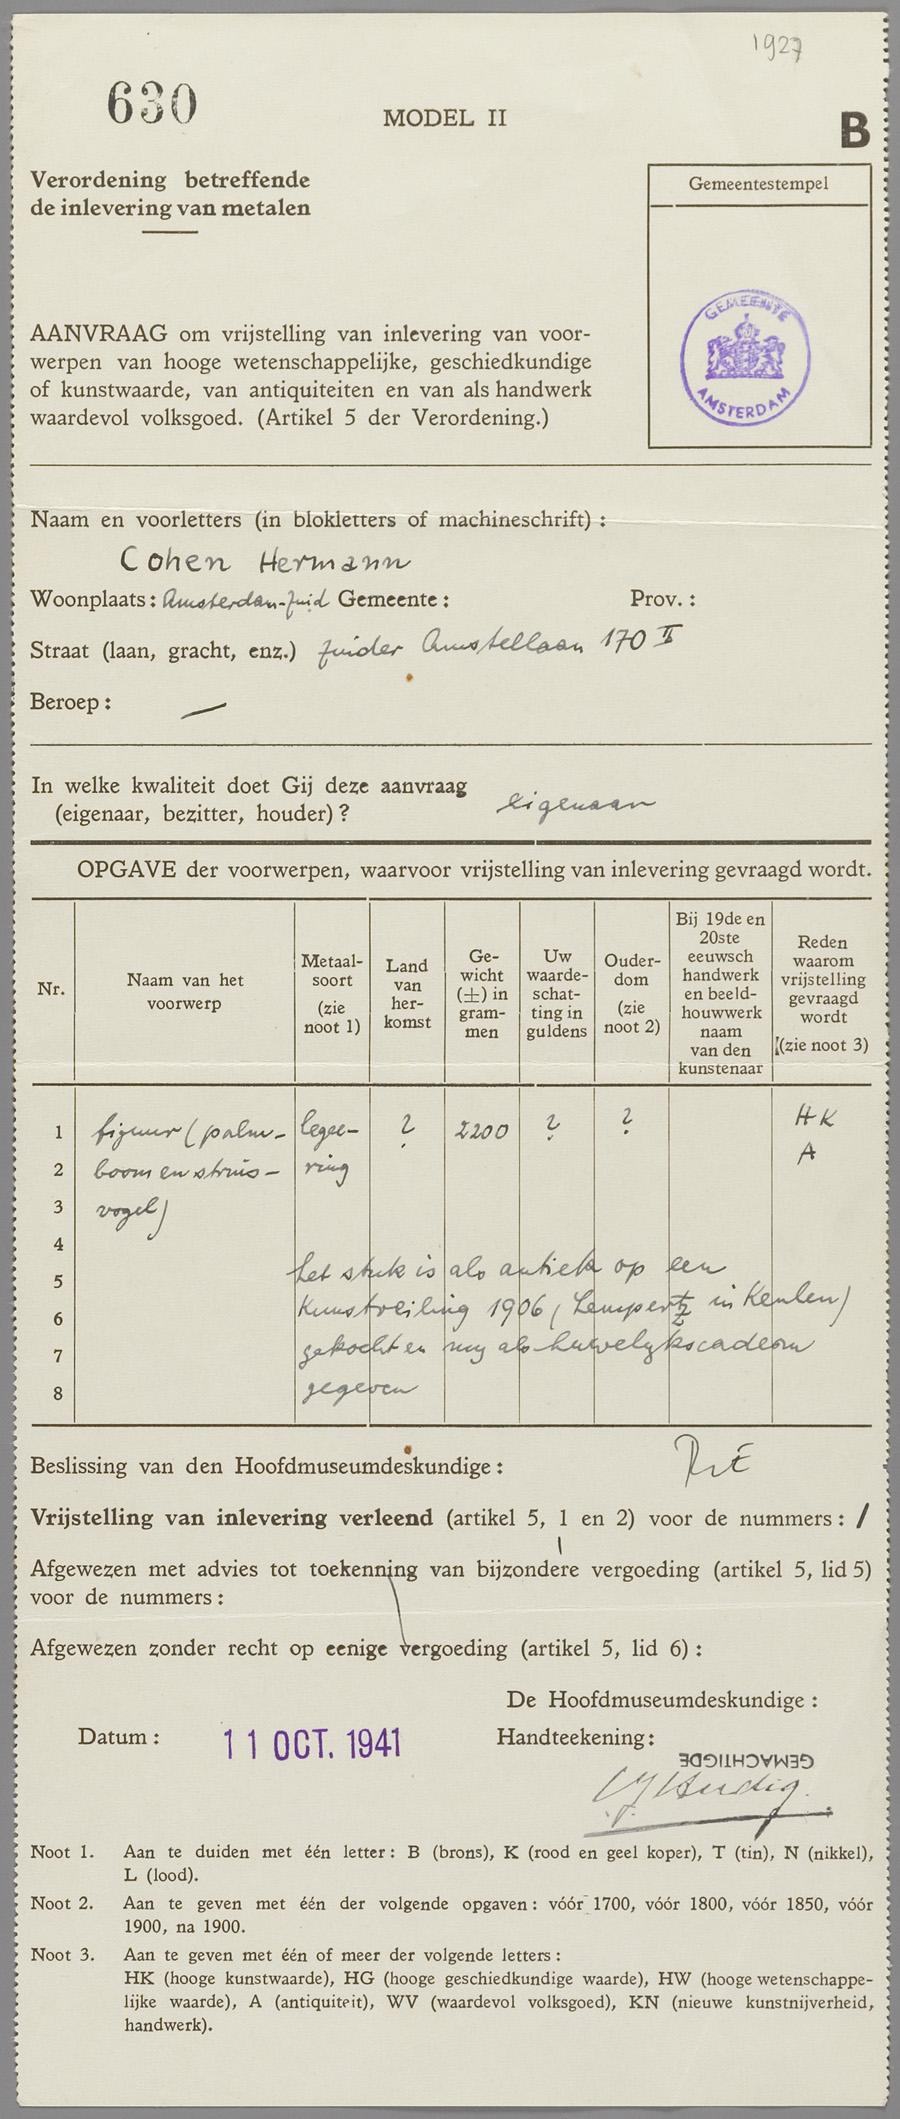 1927
630
MODEL II
B
Verordening betreffende
de inlevering van metalen
Gemeentestempel
GEMEENTE
AMSTERDAM
AANVRAAG om vrijstelling van inlevering van voor-
werpen van hooge wetenschappelijke, geschiedkundige
of kunstwaarde, van antiquiteiten en van als handwerk
waardevol volksgoed. (Artikel 5 der Verordening.)
Naam en voorletters (in blokletters of machineschrift) :
Cohen Hermann
Woonplaats : Amsterdam-Zuid Gemeente : Prov. :
Straat (laan, gracht, enz.) Zuider Amstellaan 170 II
Beroep : —
In welke kwaliteit doet Gij deze aanvraag
(eigenaar, bezitter, houder) ? eigenaar
OPGAVE der voorwerpen, waarvoor vrijstelling van inlevering gevraagd wordt.
Nr.
Naam van het
voorwerp
Metaal-
soort
(zie
noot 1)
Land
van
her-
komst
Ge-
wicht
(±) in
gram-
men
Uw
waarde-
schat-
ting in
guldens
Ouder-
dom
(zie
noot 2)
Bij 19de en
20ste
eeuwsch
handwerk
en beeld-
houwwerk
naam
van den
kunstenaar
Reden
waarom
vrijstelling
gevraagd
wordt
(zie noot 3)
1 figuur (palm- legee- ? 2200 ? ? HK
2 boom en struis- ring A
3 vogel)
4
5 het stuk is als antiek op een
6 Kunstveiling 1906 (Lempertz in Keulen)
7 gekocht en my als huwelykscadeau
8 gegeven
Beslissing van den Hoofdmuseumdeskundige :
Vrijstelling van inlevering verleend (artikel 5, 1 en 2) voor de nummers : 1
Afgewezen met advies tot toekenning van bijzondere vergoeding (artikel 5, lid 5)
voor de nummers :
Afgewezen zonder recht op eenige vergoeding (artikel 5, lid 6) :
De Hoofdmuseumdeskundige :
Datum : 11 OCT. 1941 Handteekening :
GEMACHTIGDE
Noot 1. Aan te duiden met één letter : B (brons), K (rood en geel koper), T (tin), N (nikkel),
L (lood).
Noot 2. Aan te geven met één der volgende opgaven : vóór 1700, vóór 1800, vóór 1850, vóór
1900, na 1900.
Noot 3. Aan te geven met één of meer der volgende letters :
HK (hooge kunstwaarde), HG (hooge geschiedkundige waarde), HW (hooge wetenschappe-
lijke waarde), A (antiquiteit), WV (waardevol volksgoed), KN (nieuwe kunstnijverheid,
handwerk).